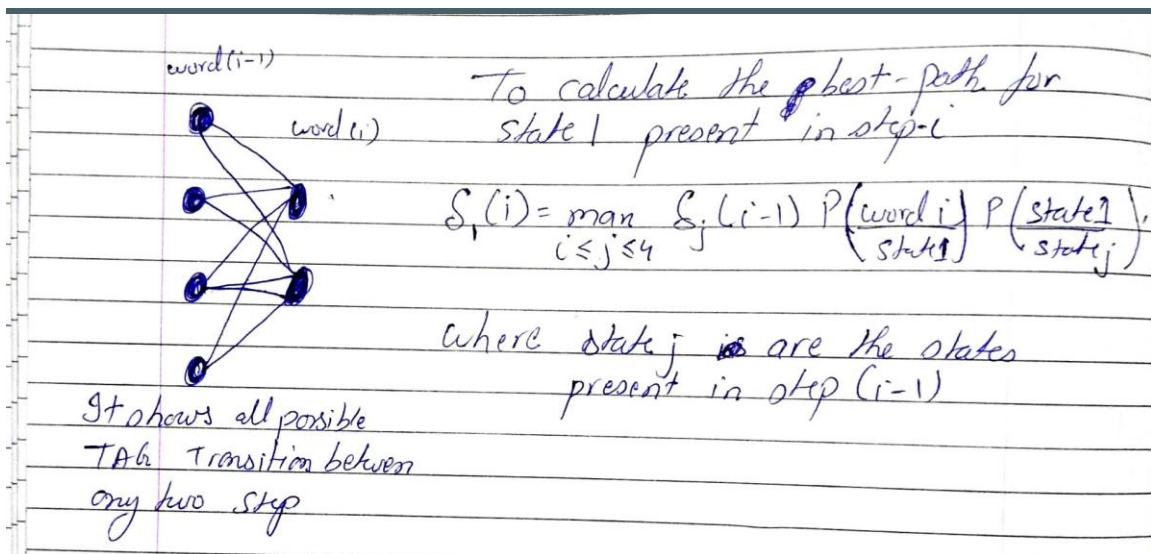 word (i-1)
word (i)
To calculate the best-path for
state 1 present in step-i
S₁(i) = max S_j (i-1) P(word i / state1) P(state1 / state j).
i ≤ j ≤ 4
where state j are the states
present in step (i-1)
It shows all possible
TAG Transition between
any two step